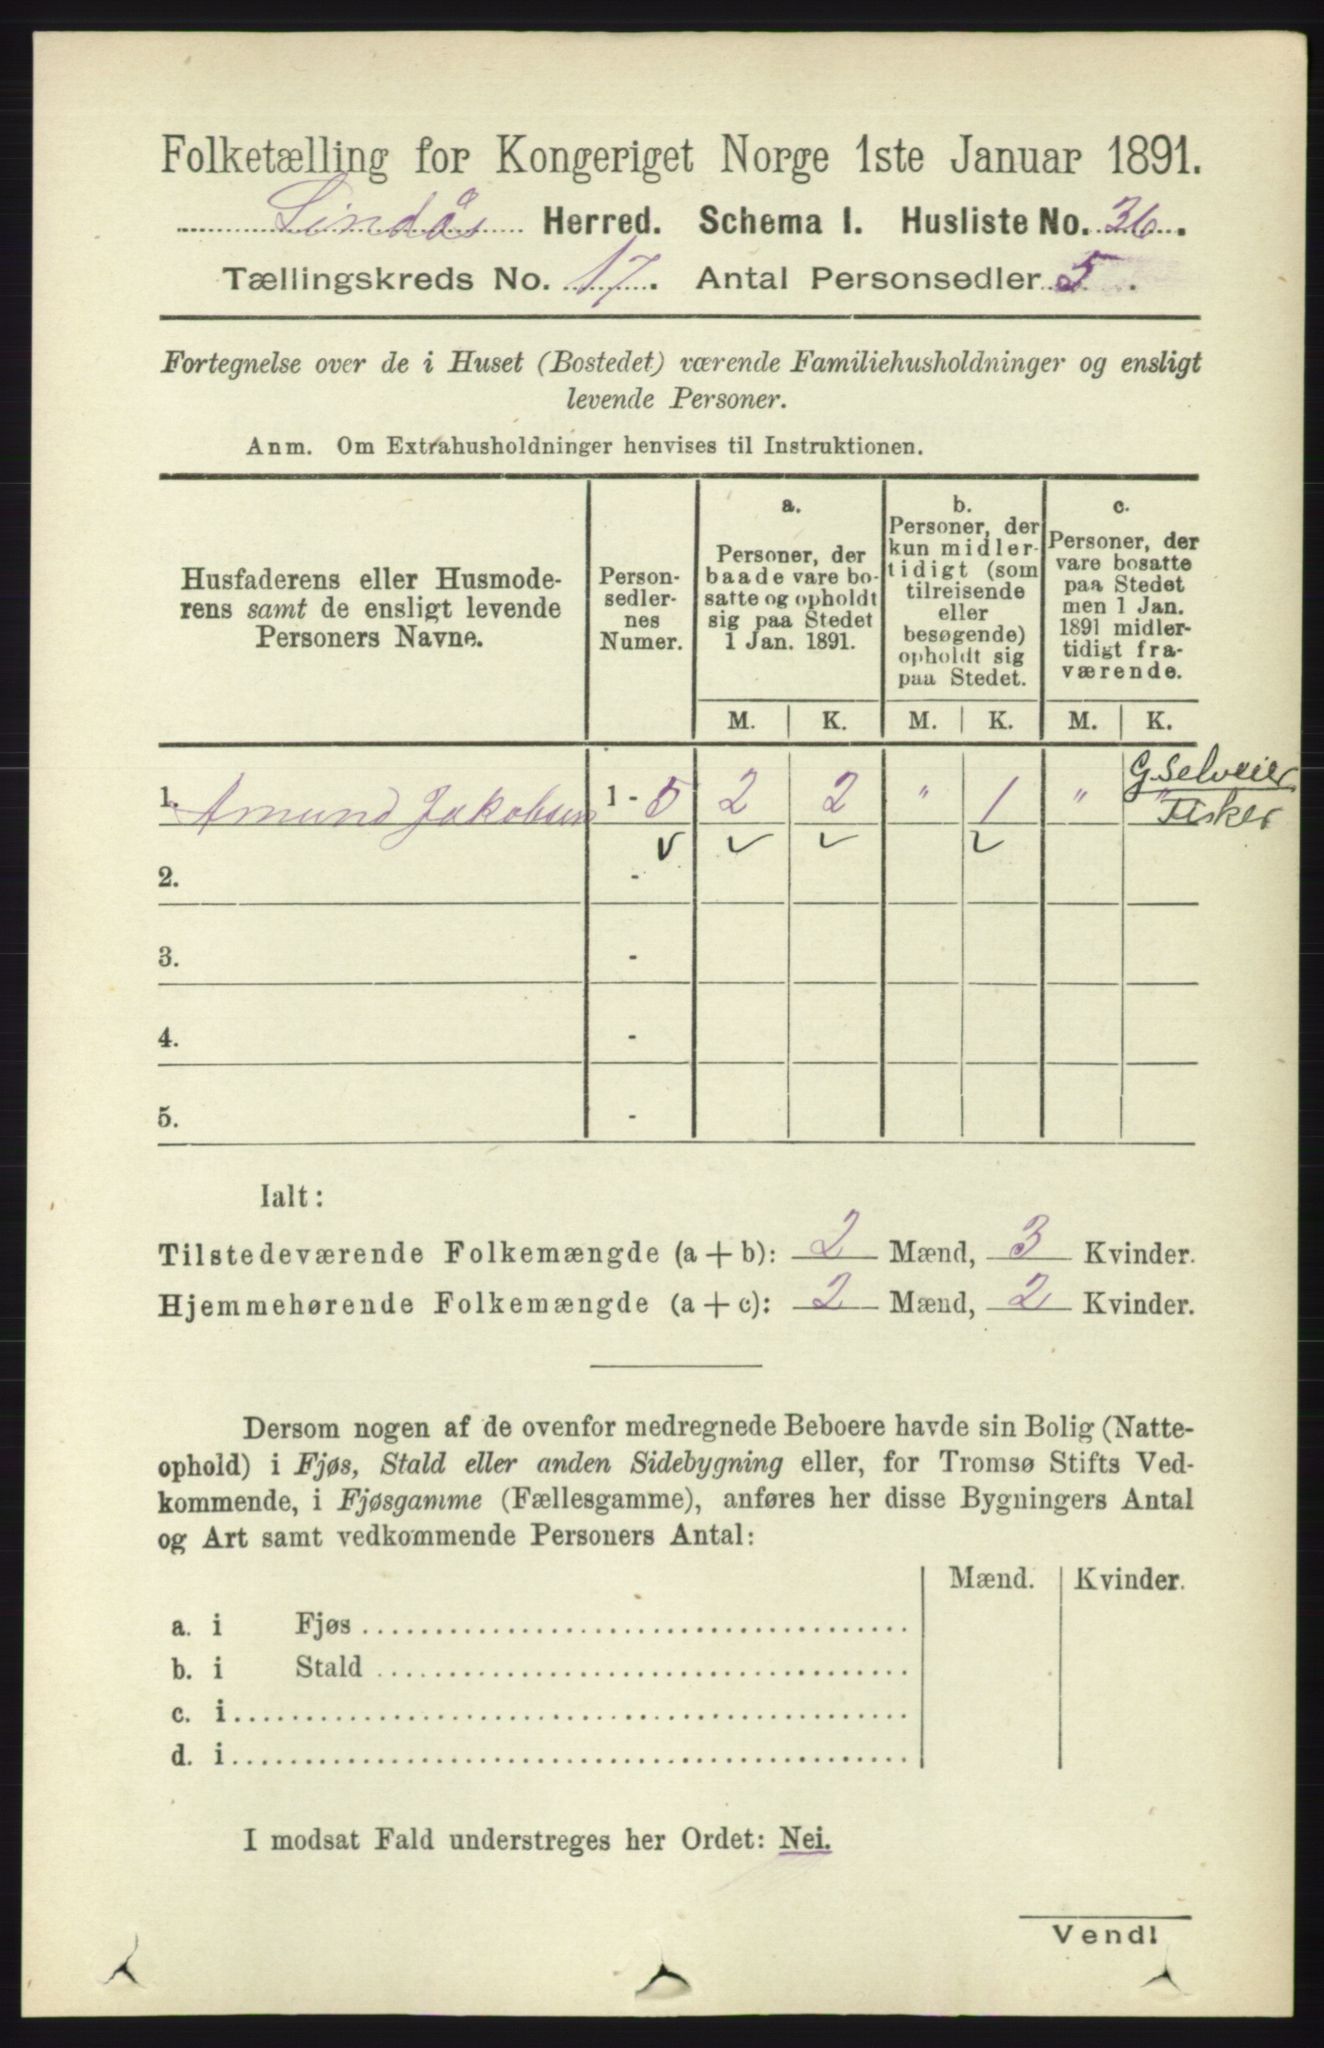 Folketælling for Kongeriget Norge 1ste Januar 1891.
Lindås Herred. Schema I. Husliste No. 36.
Tællingskreds No. 17. Antal Personsedler 5.
Fortegnelse over de i Huset (Bostedet) værende Familiehusholdninger og ensligt
levende Personer.
Anm. Om Extrahusholdninger henvises til Instruktionen.
Husfaderens eller Husmode-
rens samt de ensligt levende
Personers Navne.
Person-
sedler-
nes
Numer.
a.
Personer, der
baade vare bo-
satte og opholdt
sig paa Stedet
1 Jan. 1891.
b.
Personer, der
kun midler-
tidigt (som
tilreisende
eller
besøgende)
opholdt sig
paa Stedet.
c.
Personer, der
vare bosatte
paa Stedet
men 1 Jan.
1891 midler-
tidigt fra-
værende.
M. K. M. K. M. K.
G. Selveier
1. Amund Jakobsen 1 - 5 2 2 " 1 " " Fisker
2. -
3. -
4. -
5. -
Ialt:
Tilstedeværende Folkemængde (a + b): 2 Mænd, 3 Kvinder.
Hjemmehørende Folkemængde (a + c): 2 Mænd, 2 Kvinder.
Dersom nogen af de ovenfor medregnede Beboere havde sin Bolig (Natte-
ophold) i Fjøs, Stald eller anden Sidebygning eller, for Tromsø Stifts Ved-
kommende, i Fjøsgamme (Fællesgamme), anføres her disse Bygningers Antal
og Art samt vedkommende Personers Antal:
Mænd. Kvinder.
a. i Fjøs
b. i Stald
c. i
d. i
I modsat Fald understreges her Ordet: Nei.
Vend!